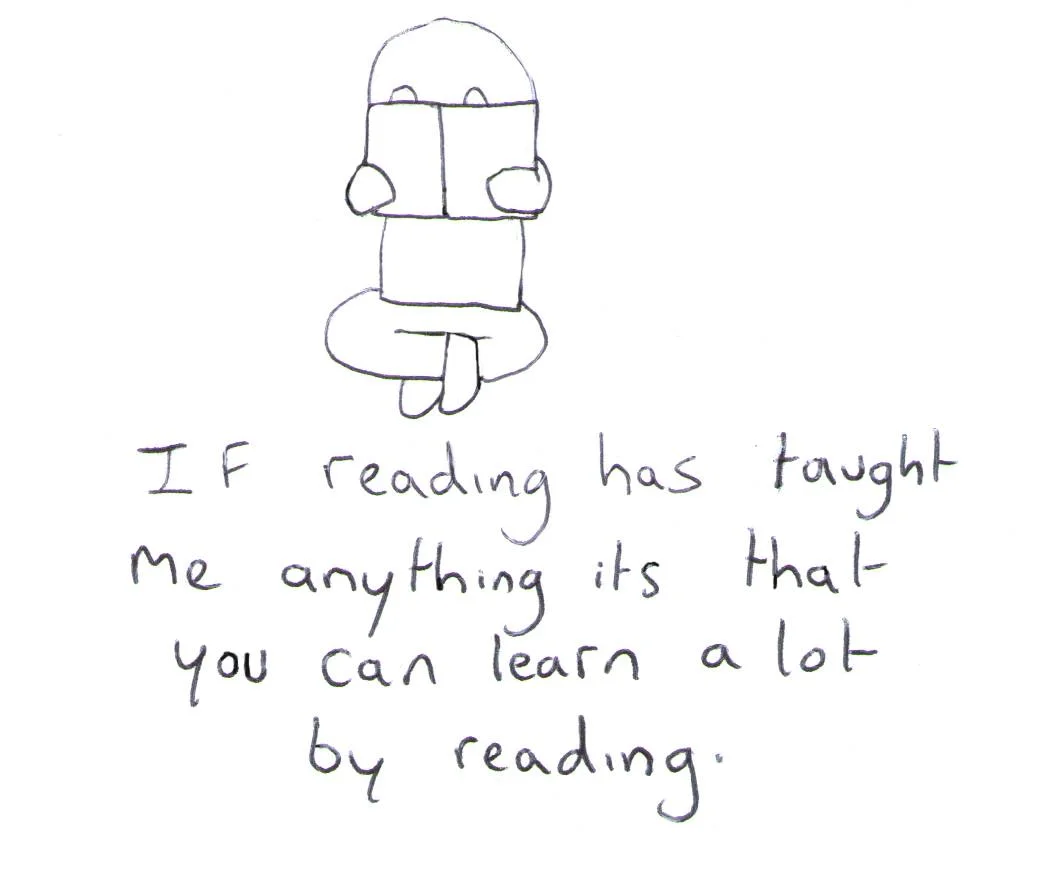 IF reading has taught
me anything its that
you can learn a lot
by reading.